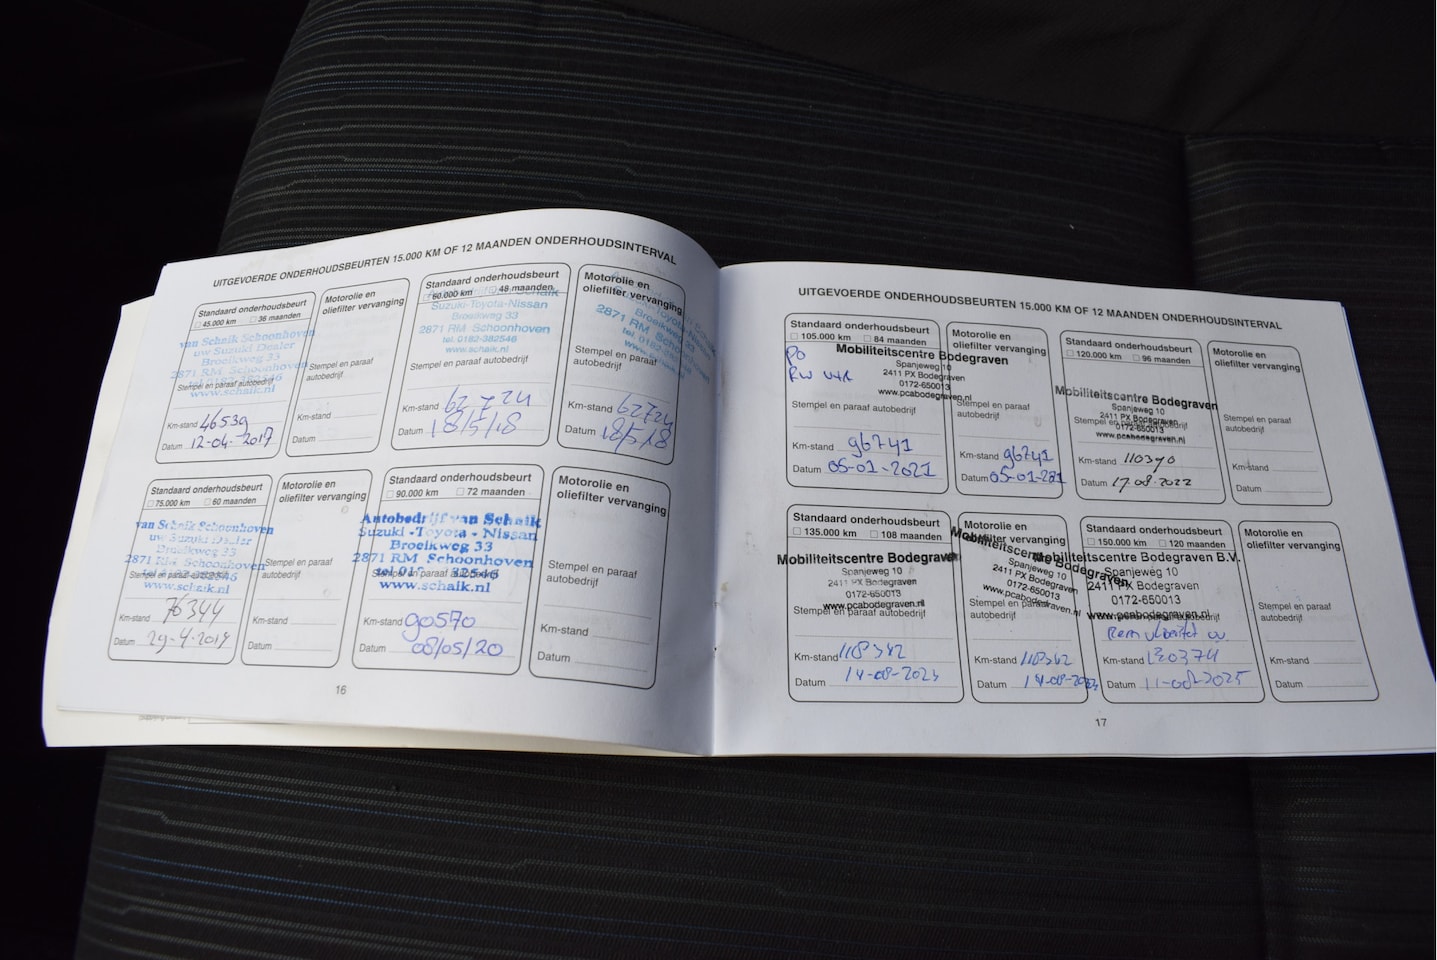 UITGEVOERDE ONDERHOUDSBEURTEN 15.000 KM OF 12 MAANDEN ONDERHOUDSINTERVAL
Standaard onderhoudsbeurt
45.000 km 36 maanden
van Schaik Schoonhoven
uw Suzuki Dealer
Broeikweg 33
2871 RM Schoonhoven
Stempel en paraaf autobedrijf
www.schaik.nl
Km-stand 46539
Datum 12-04-2017
Motorolie en
oliefilter vervanging
Stempel en paraaf
autobedrijf
Km-stand
Datum
Standaard onderhoudsbeurt
60.000 km 48 maanden
Suzuki-Toyota-Nissan
Broeikweg 33
2871 RM Schoonhoven
tel. 0182-382546
www.schaik.nl
Stempel en paraaf autobedrijf
Km-stand 62724
Datum 18/5/18
Motorolie en
oliefilter vervanging
Suzuki-Toyota-Nissan
Broeikweg 33
2871 RM Schoonhoven
Stempel en paraaf
autobedrijf
Km-stand 62724
Datum 18/5/18
Standaard onderhoudsbeurt
75.000 km 60 maanden
van Schaik Schoonhoven
uw Suzuki Dealer
Broeikweg 33
2871 RM Schoonhoven
Stempel en paraaf autobedrijf
www.schaik.nl
Km-stand 76344
Datum 29-4-2019
Motorolie en
oliefilter vervanging
Stempel en paraaf
autobedrijf
Km-stand
Datum
Standaard onderhoudsbeurt
90.000 km 72 maanden
Autobedrijf van Schaik
Suzuki - Toyota - Nissan
Broeikweg 33
2871 RM Schoonhoven
Stempel en paraaf autobedrijf
www.schaik.nl
Km-stand 90570
Datum 08/05/20
Motorolie en
oliefilter vervanging
Stempel en paraaf
autobedrijf
Km-stand
Datum
16
UITGEVOERDE ONDERHOUDSBEURTEN 15.000 KM OF 12 MAANDEN ONDERHOUDSINTERVAL
Standaard onderhoudsbeurt
105.000 km 84 maanden
Mobiliteitscentre Bodegraven
Spanjeweg 10
2411 PX Bodegraven
0172-650013
www.pcabodegraven.nl
Stempel en paraaf autobedrijf
Km-stand 96741
Datum 05-01-2021
Motorolie en
oliefilter vervanging
Stempel en paraaf
autobedrijf
Km-stand 96741
Datum 05-01-281
Standaard onderhoudsbeurt
120.000 km 96 maanden
Mobiliteitscentre Bodegraven
Spanjeweg 10
2411 PX Bodegraven
Stempel en paraaf autobedrijf
0172-650013
www.pcabodegraven.nl
Km-stand 110390
Datum 17-08-2022
Motorolie en
oliefilter vervanging
Stempel en paraaf
autobedrijf
Km-stand
Datum
Standaard onderhoudsbeurt
135.000 km 108 maanden
Mobiliteitscentre Bodegraven
Spanjeweg 10
2411 PX Bodegraven
0172-650013
www.pcabodegraven.nl
Stempel en paraaf autobedrijf
Km-stand 118342
Datum 14-08-2023
Motorolie en
oliefilter vervanging
Mobiliteitscentre Bodegraven
Spanjeweg 10
2411 PX Bodegraven
0172-650013
www.pcabodegraven.nl
Stempel en paraaf
autobedrijf
Km-stand 118342
Datum 14-08-2023
Standaard onderhoudsbeurt
150.000 km 120 maanden
Mobiliteitscentre Bodegraven B.V.
Spanjeweg 10
2411 PX Bodegraven
0172-650013
www.pcabodegraven.nl
Km-stand 130374
Datum 11-08-2025
Motorolie en
oliefilter vervanging
Stempel en paraaf
autobedrijf
Km-stand
Datum
17